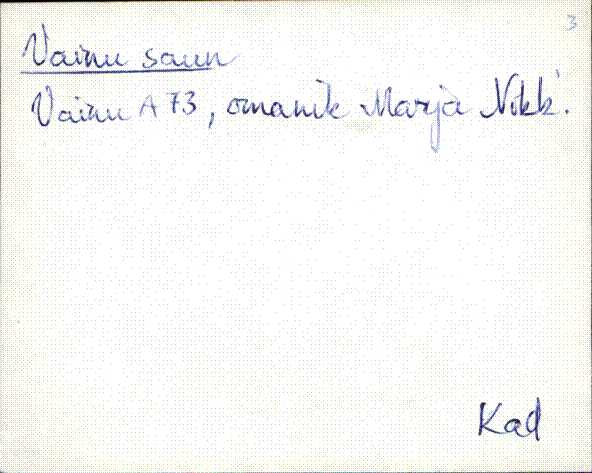 3
Vainu saun
Vainu A 73, omanik Marja Nikk'.
Kad